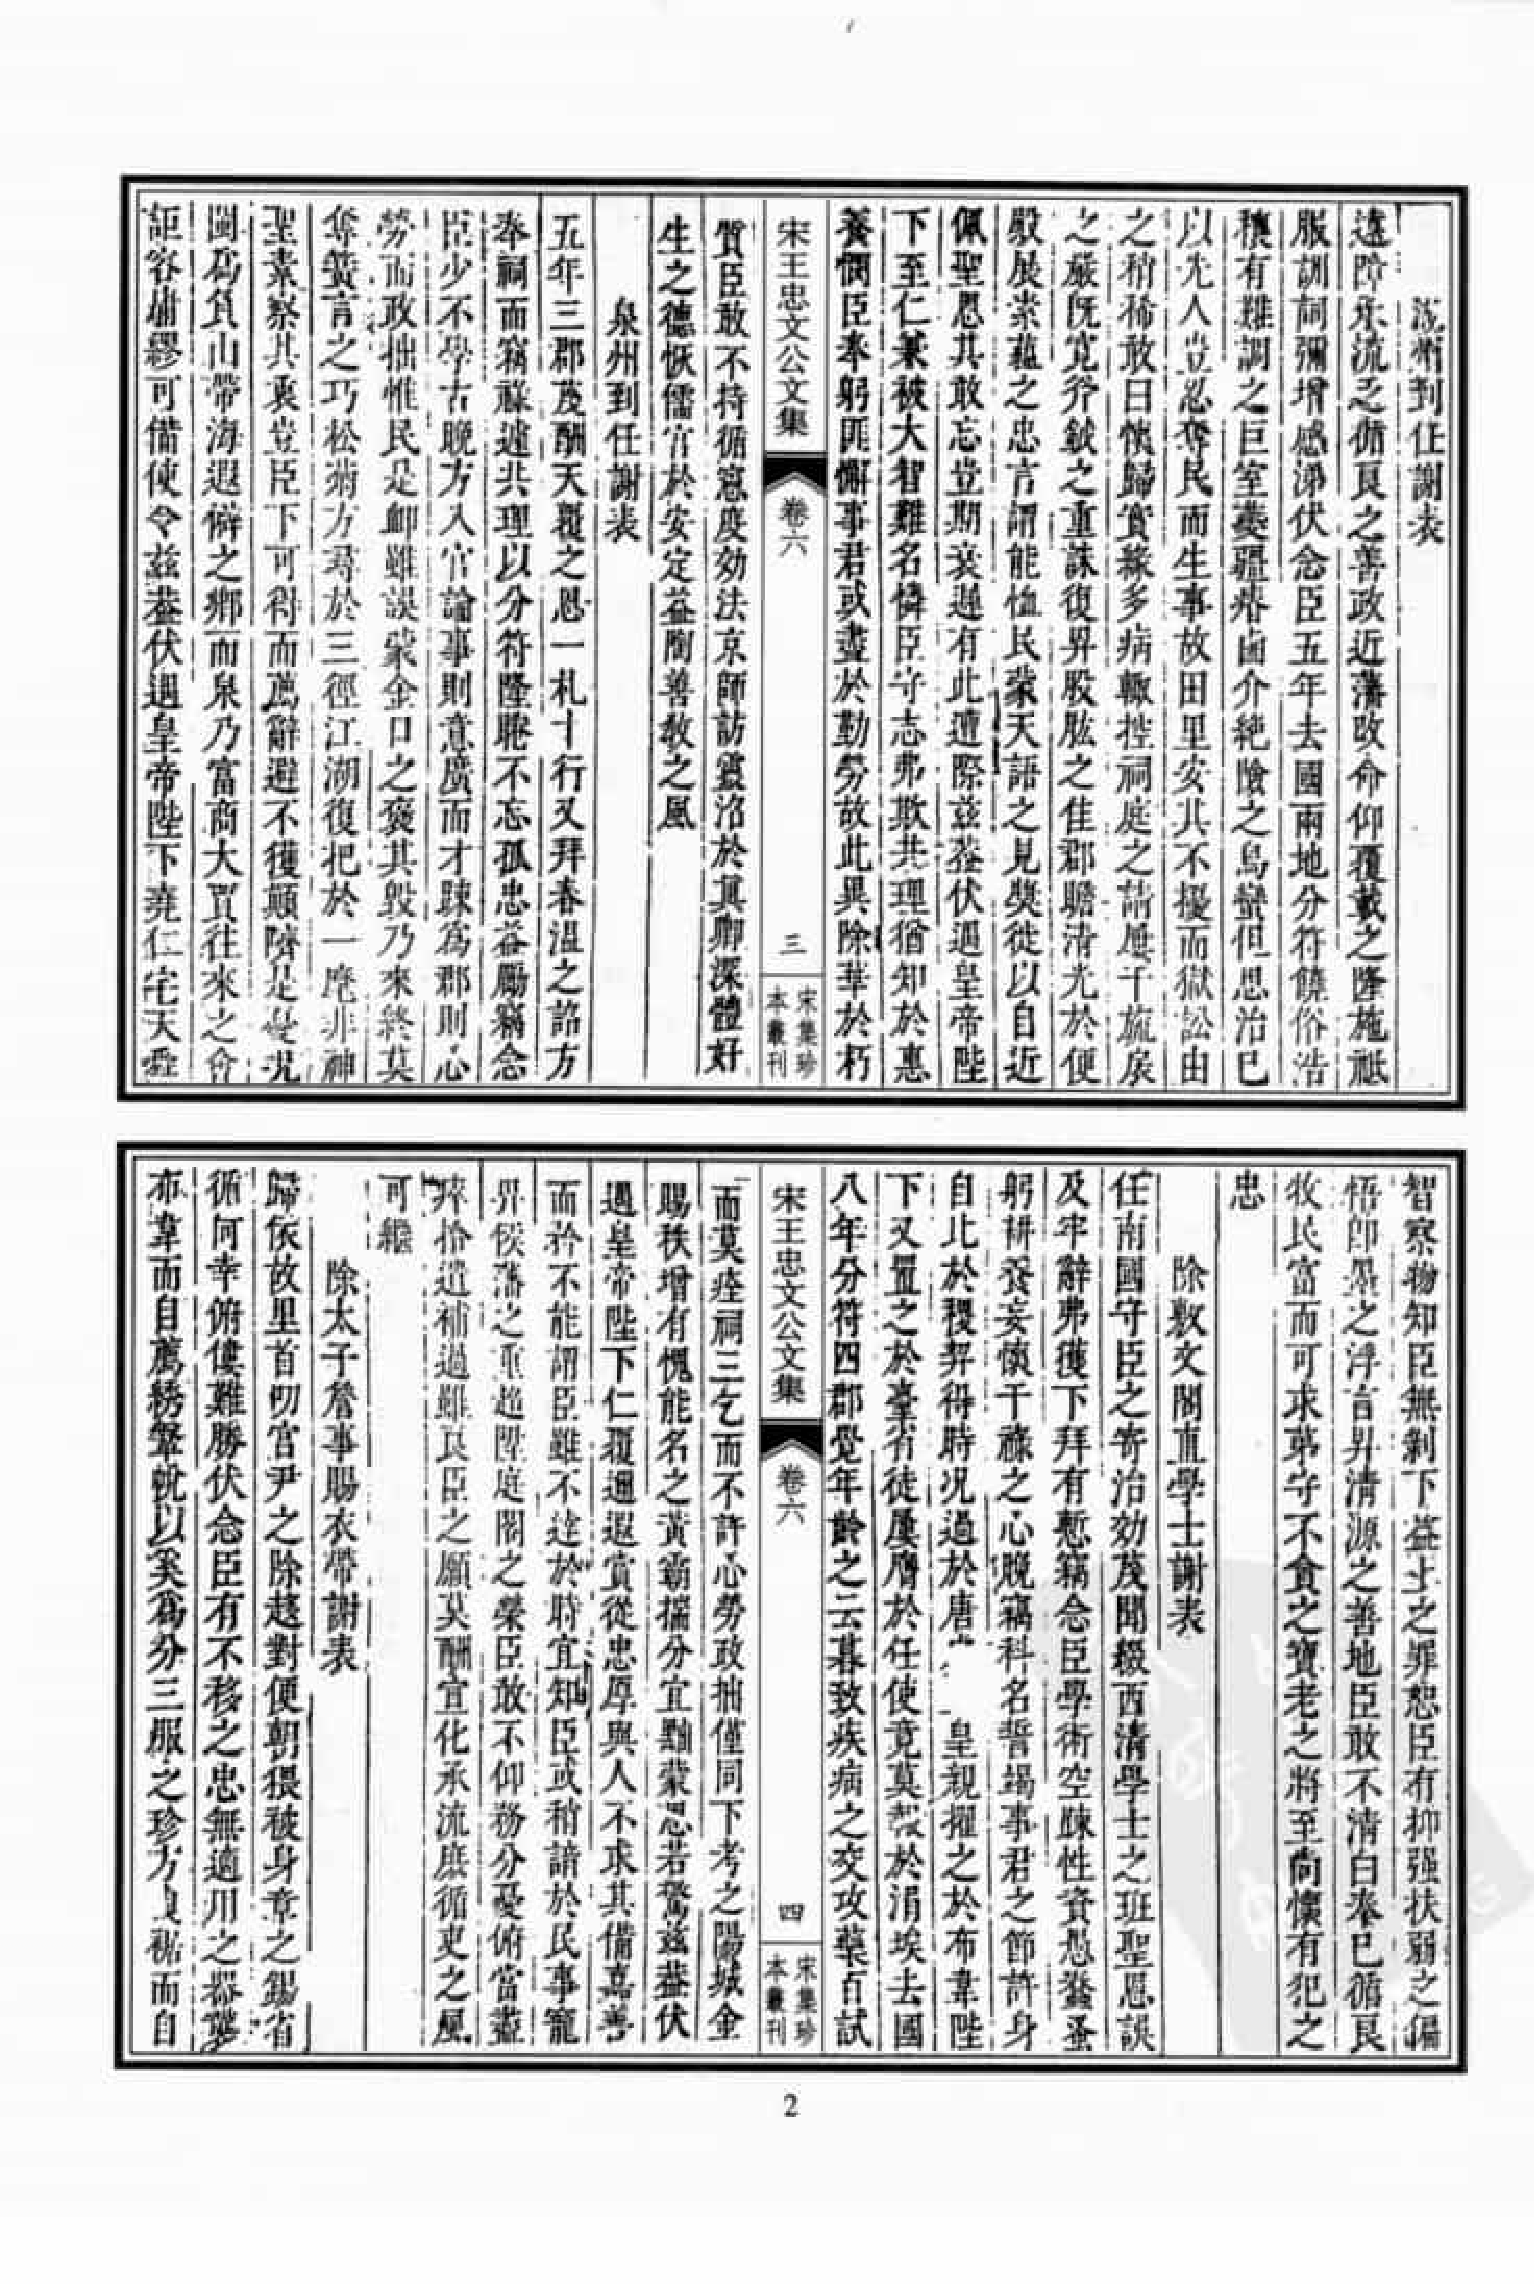 州到任謝表
遠障承流乏循良之善政近藩改命仰覆載之隆施祗
服訓詞彌增感涕伏念臣五年去國兩地分符饒俗浩
穰有難調之巨室夔疆瘠鹵介絶險之烏蠻但思治巳
以先人豈忍奪民而生事故田里安其不擾而獄訟由
之稍稀敢曰懷歸實緣多病輒控祠庭之請屢干旒扆
之嚴旣寬斧鉞之重誅復畀股肱之佳郡瞻清光於便
殿展素蘊之忠言謂能恤民蒙天語之見奬徙以自近
佩聖恩其敢忘豈期衰遲有此遭際兹葢伏遇皇帝陛
下至仁兼被大智難名憐臣守志弗欺共理猶知於惠
養憫臣奉躬匪懈事君或盡於勤勞故此異除華於朽
宋王忠文公文集
卷六
三
宋集珍
本叢刊
質臣敢不持循寬度効法京師訪靈洽於其鄕深體好
生之德恢儒官於安定益陶善敎之風
泉州到任謝表
五年三郡茂酬天覆之恩一札十行又拜春溫之詔方
奉祠而竊祿遽共理以分符隆眷不忘孤忠益勵竊念
臣少不學古晚方入官論事則意廣而才踈爲郡則心
勞而政拙惟民是䘏雖誤蒙金口之褒其毁乃來終莫
奪簧言之巧松菊方尋於三徑江湖復把於一麾非神
聖素察其衷豈臣下可得而薦辭避不獲顚隮是憂况
閩爲負山帶海遐僻之鄕而泉乃富商大賈往來之會
詎容庸繆可備使令兹葢伏遇皇帝陛下堯仁宅天舜
智察物知臣無剝下益上之罪恕臣有抑强扶弱之偏
悟卽墨之浮言畀清源之善地臣敢不清白奉巳循良
牧民富而可求苐守不貪之寶老之將至尚懷有犯之
忠
除敷文閣直學士謝表
任南國守臣之寄治効茂聞綴西清學士之班聖恩誤
及牢辭弗獲下拜有慙竊念臣學術空踈性資愚蠢蚤
躬耕養妄懷干祿之心晚竊科名誓竭事君之節許身
自比於稷契得時况過於唐 皇親擢之於布韋陛
下又置之於臺省徒屢膺於任使竟莫報於涓埃去國
八年分符四郡覺年齡之云暮致疾病之交攻藥百試
宋王忠文公文集
卷六
四
宋集珍
本叢刊
而莫痊祠三乞而不許心勞政拙僅同下考之陽城金
賜秩增有愧能名之黃霸揣分宜黜蒙恩若驚兹葢伏
遇皇帝陛下仁覆邇遐賞從忠厚與人不求其備嘉善
而矜不能謂臣雖不達於時宜知臣或稍諳於民事寵
畀侯藩之重超陞庭閣之榮臣敢不仰務分憂俯當盡
瘁拾遺補過雖艮臣之願莫酬宣化承流庶循吏之風
可繼
除太子詹事賜衣帶謝表
歸依故里首叨宫尹之除趍對便朝猥被身章之錫省
循何幸俯僂難勝伏念臣有不移之忠無適用之器奪
布韋而自薦務鞶帨以奚爲分三服之珍方 裾而自
2